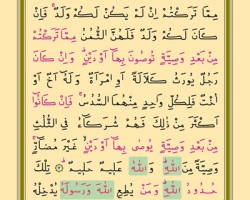 مِمَّا تَرَكْتُمْ إِن لَّمْ يَكُن لَّكُمْ وَلَدٌ ۚ فَإِن
كَانَ لَكُمْ وَلَدٌ فَلَهُنَّ الثُّمُنُ مِمَّا تَرَكْتُم
مِّن بَعْدِ وَصِيَّةٍ تُوصُونَ بِهَا أَوْ دَيْنٍ ۗ وَإِن كَانَ
رَجُلٌ يُورَثُ كَلَالَةً أَوِ امْرَأَةٌ وَلَهُ أَخٌ أَوْ
أُخْتٌ فَلِكُلِّ وَاحِدٍ مِّنْهُمَا السُّدُسُ ۚ فَإِن كَانُوا
أَكْثَرَ مِن ذَٰلِكَ فَهُمْ شُرَكَاءُ فِي الثُّلُثِ
مِن بَعْدِ وَصِيَّةٍ يُوصَىٰ بِهَا أَوْ دَيْنٍ غَيْرَ مُضَارٍّ
وَصِيَّةً مِّنَ اللَّهِ ۗ وَاللَّهُ عَلِيمٌ حَلِيمٌ ۝ تِلْكَ
حُدُودُ اللَّهِ ۚ وَمَن يُطِعِ اللَّهَ وَرَسُولَهُ يُدْخِلْهُ